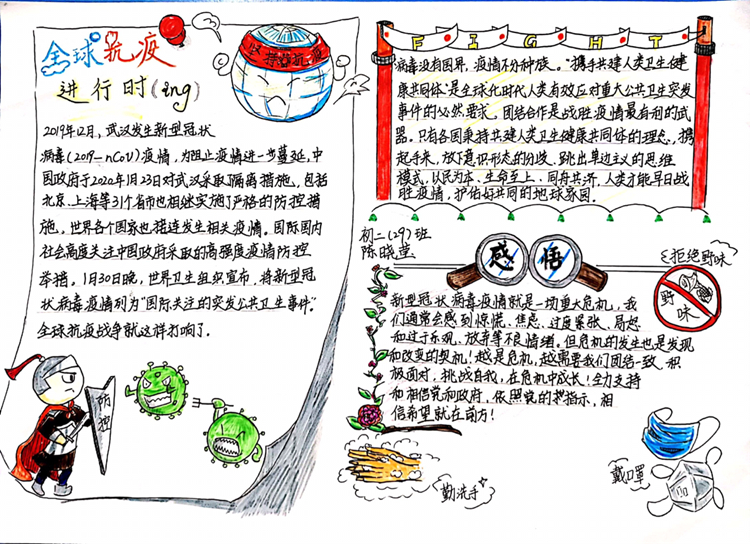 全球抗疫
进行时(ing)
2019年12月,武汉发生新型冠状
病毒(2019-nCoV)疫情,为阻止疫情进一步蔓延,中
国政府于2020年1月23日对武汉采取了隔离措施,包括
北京、上海等31个省市也相继实施了严格的防控措
施,世界各个国家也接连发生相关疫情。国际国内
社会高度关注中国政府采取的高强度疫情防控
举措。1月30日晚,世界卫生组织宣布,将新型冠
状病毒疫情列为“国际关注的突发公共卫生事件”。
全球抗疫战争就这样打响了。
坚持抗疫
防控
FIGHT
病毒没有国界,疫情不分种族。“携手共建人类卫生健
康共同体”是全球化时代人类有效应对重大公共卫生突发
事件的必然要求。团结合作是战胜疫情最有利的武
器。只有各国秉持共建人类卫生健康共同体的理念,携
起手来,放下意识形态的分歧、跳出单边主义的思维
模式,以民为本、生命至上、同舟共济,人类才能早日战
胜疫情,护佑好共同的地球家园。
初二(29)班
陈晓莹
感悟
拒绝野味
野味
新型冠状病毒疫情就是一场重大危机,我
们通常会感到惊慌、焦虑、过度紧张、易怒
和过于乐观、放弃等不良情绪。但危机的发生也是发现
和改变的契机!越是危机,越需要我们团结一致、积
极面对,挑战自我,在危机中成长!全力支持
和相信党和政府,依照党的指示,相
信希望就在前方!
勤洗手
戴口罩